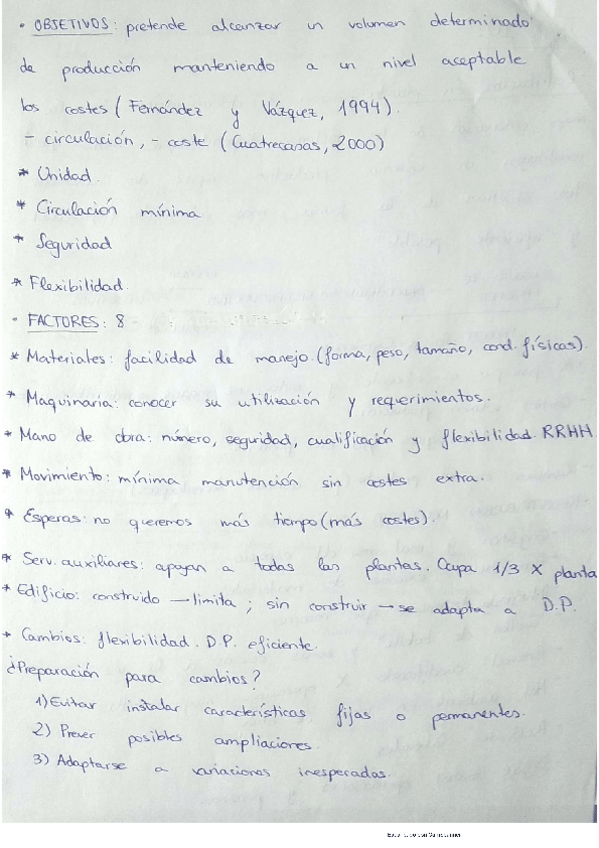 • OBJETIVOS: pretende alcanzar un volumen determinado
de producción manteniendo a un nivel aceptable
los costes (Fernández y Vázquez, 1994).
- circulación, - coste (Cuatrecasas, 2000)
* Unidad.
* Circulación mínima
* Seguridad
* Flexibilidad.
• FACTORES: 8
* Materiales: facilidad de manejo (forma, peso, tamaño, cond. físicas).
* Maquinaria: conocer su utilización y requerimientos.
* Mano de obra: número, seguridad, cualificación y flexibilidad. RRHH
* Movimiento: mínima manutención sin costes extra.
* Esperas: no queremos más tiempo (más costes).
* Serv. auxiliares: apoyan a todas las plantas. Ocupa 1/3 x planta
* Edificio: construido → limita; sin construir → se adapta a D.P.
* Cambios: flexibilidad. D.P. eficiente.
¿Preparación para cambios?
1) Evitar instalar características fijas o permanentes.
2) Prever posibles ampliaciones.
3) Adaptarse a variaciones inesperadas.